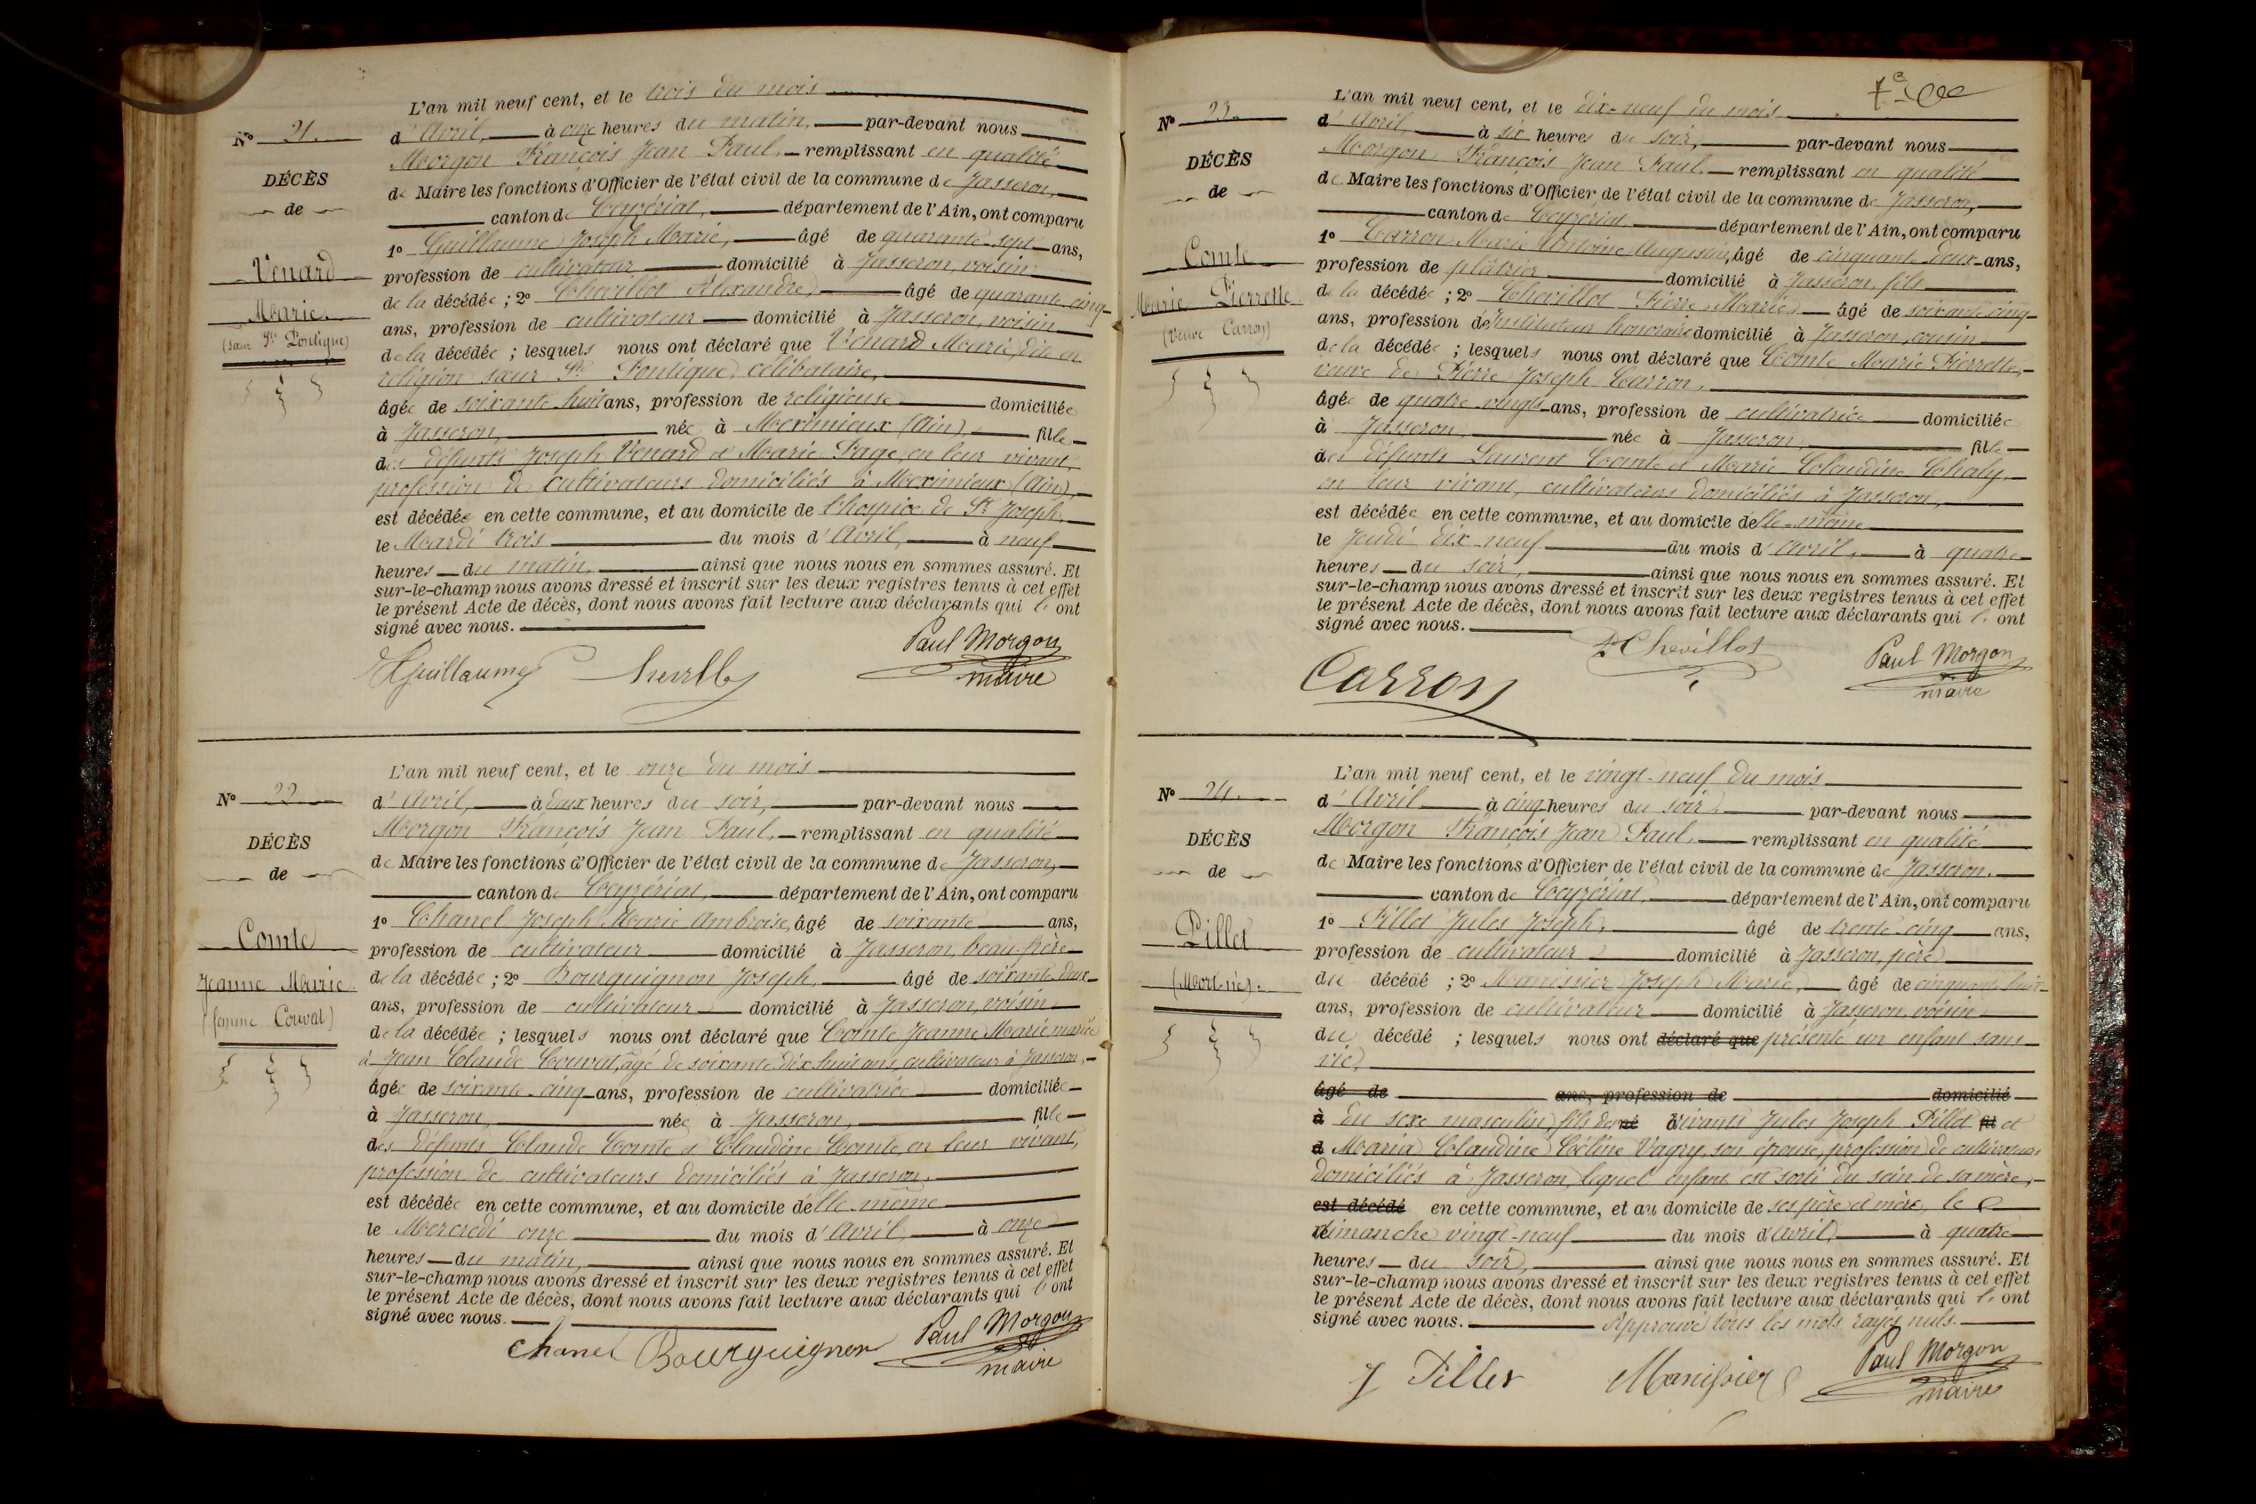 N° 21.
DÉCÈS
de
Venard
Marie
(sœur Ste Pontique)
L'an mil neuf cent, et le trois du mois
d'Avril, à onze heures du matin, par-devant nous
Morgon François Jean Paul, remplissant en qualité
de Maire les fonctions d'Officier de l'état civil de la commune de Jasseron,
canton de Ceyzériat, département de l'Ain, ont comparu
1° Guillaume Joseph Marie, âgé de quarante-sept ans,
profession de cultivateur domicilié à Jasseron, voisin
de la décédée ; 2° Chevillot Alexandre, âgé de quarante-cinq
ans, profession de cultivateur domicilié à Jasseron, voisin
de la décédée ; lesquels nous ont déclaré que Venard Marie, dite en
religion sœur Ste Pontique, célibataire,
âgée de soixante-huit ans, profession de religieuse domiciliée
à Jasseron, née à Meximieux (Ain), fille
des défunts Joseph Venard et Marie Page, en leur vivant,
profession de cultivateurs domiciliés à Meximieux (Ain),
est décédée en cette commune, et au domicile de l'hospice de St Joseph,
le Mardi trois du mois d'Avril, à neuf
heures du matin, ainsi que nous nous en sommes assuré. Et
sur-le-champ nous avons dressé et inscrit sur les deux registres tenus à cet effet
le présent Acte de décès, dont nous avons fait lecture aux déclarants qui l'ont
signé avec nous.
Guillaume Paul Morgon
maire
N° 22
DÉCÈS
de
Comte
Jeanne Marie
(femme Couvat)
L'an mil neuf cent, et le onze du mois
d'Avril, à deux heures du soir, par-devant nous
Morgon François Jean Paul, remplissant en qualité
de Maire les fonctions d'Officier de l'état civil de la commune de Jasseron,
canton de Ceyzériat, département de l'Ain, ont comparu
1° Chanel Joseph Marie Ambroise, âgé de soixante ans,
profession de cultivateur domicilié à Jasseron, beau-frère
de la décédée ; 2° Bourguignon Joseph, âgé de soixante-deux
ans, profession de cultivateur domicilié à Jasseron, voisin
de la décédée ; lesquels nous ont déclaré que Comte Jeanne Marie mariée
à Jean Claude Couvat, âgé de soixante-dix-huit ans, cultivateur à Jasseron,
âgée de soixante-cinq ans, profession de cultivatrice domiciliée
à Jasseron, née à Jasseron, fille
des défunts Claude Comte et Claudine Comte, en leur vivant,
profession de cultivateurs domiciliés à Jasseron,
est décédée en cette commune, et au domicile d'elle-même
le Mercredi onze du mois d'Avril, à onze
heures du matin, ainsi que nous nous en sommes assuré. Et
sur-le-champ nous avons dressé et inscrit sur les deux registres tenus à cet effet
le présent Acte de décès, dont nous avons fait lecture aux déclarants qui l'ont
signé avec nous.
Chanel Bourguignon Paul Morgon
maire
N° 23.
DÉCÈS
de
Comte
Marie Pierrette
(Veuve Carron)
L'an mil neuf cent, et le dix-neuf du mois
d'Avril, à six heures du soir, par-devant nous
Morgon François Jean Paul, remplissant en qualité
de Maire les fonctions d'Officier de l'état civil de la commune de Jasseron,
canton de Ceyzériat département de l'Ain, ont comparu
1° Carron Marie Antoine Augustin, âgé de cinquante-deux ans,
profession de plâtrier domicilié à Jasseron, fils
de la décédée ; 2° Chevillot Pierre Marie, âgé de soixante-cinq
ans, profession d'Instituteur honoraire domicilié à Jasseron, cousin
de la décédée ; lesquels nous ont déclaré que Comte Marie Pierrette,
veuve de Pierre Joseph Carron,
âgée de quatre-vingts ans, profession de cultivatrice domiciliée
à Jasseron, née à Jasseron, fille
des défunts Laurent Comte et Marie Claudine Chaly,
en leur vivant, cultivateurs domiciliés à Jasseron,
est décédée en cette commune, et au domicile d'elle-même
le Jeudi dix-neuf du mois d'Avril, à quatre
heures du soir, ainsi que nous nous en sommes assuré. Et
sur-le-champ nous avons dressé et inscrit sur les deux registres tenus à cet effet
le présent Acte de décès, dont nous avons fait lecture aux déclarants qui l'ont
signé avec nous.
Carron P. Chevillot Paul Morgon
maire
N° 24.
DÉCÈS
de
Pillet
(Mort-né).
L'an mil neuf cent, et le vingt-neuf du mois
d'Avril à cinq heures du soir, par-devant nous
Morgon François Jean Paul, remplissant en qualité
de Maire les fonctions d'Officier de l'état civil de la commune de Jasseron,
canton de Ceyzériat, département de l'Ain, ont comparu
1° Pillet Jules Joseph, âgé de trente-cinq ans,
profession de cultivateur domicilié à Jasseron, père
du décédé ; 2° Manissier Joseph Marie, âgé de cinquante-huit
ans, profession de cultivateur domicilié à Jasseron, voisin
du décédé ; lesquels nous ont déclaré que présenté un enfant sans
vie,
âgé de ans, profession de domicilié
à du sexe masculin, fils de né à vivants Jules Joseph Pillet fil et
d Maria Claudine Céline Vagry, son épouse, profession de cultivateurs
domiciliés à Jasseron, lequel enfant est sorti du sein de sa mère,
est décédé en cette commune, et au domicile de ses père et mère, le
dimanche vingt-neuf du mois d'Avril à quatre
heures du soir, ainsi que nous nous en sommes assuré. Et
sur-le-champ nous avons dressé et inscrit sur les deux registres tenus à cet effet
le présent Acte de décès, dont nous avons fait lecture aux déclarants qui l'ont
signé avec nous. Approuvé tous les mots rayés nuls.
J Pillet Manissier Paul Morgon
maire